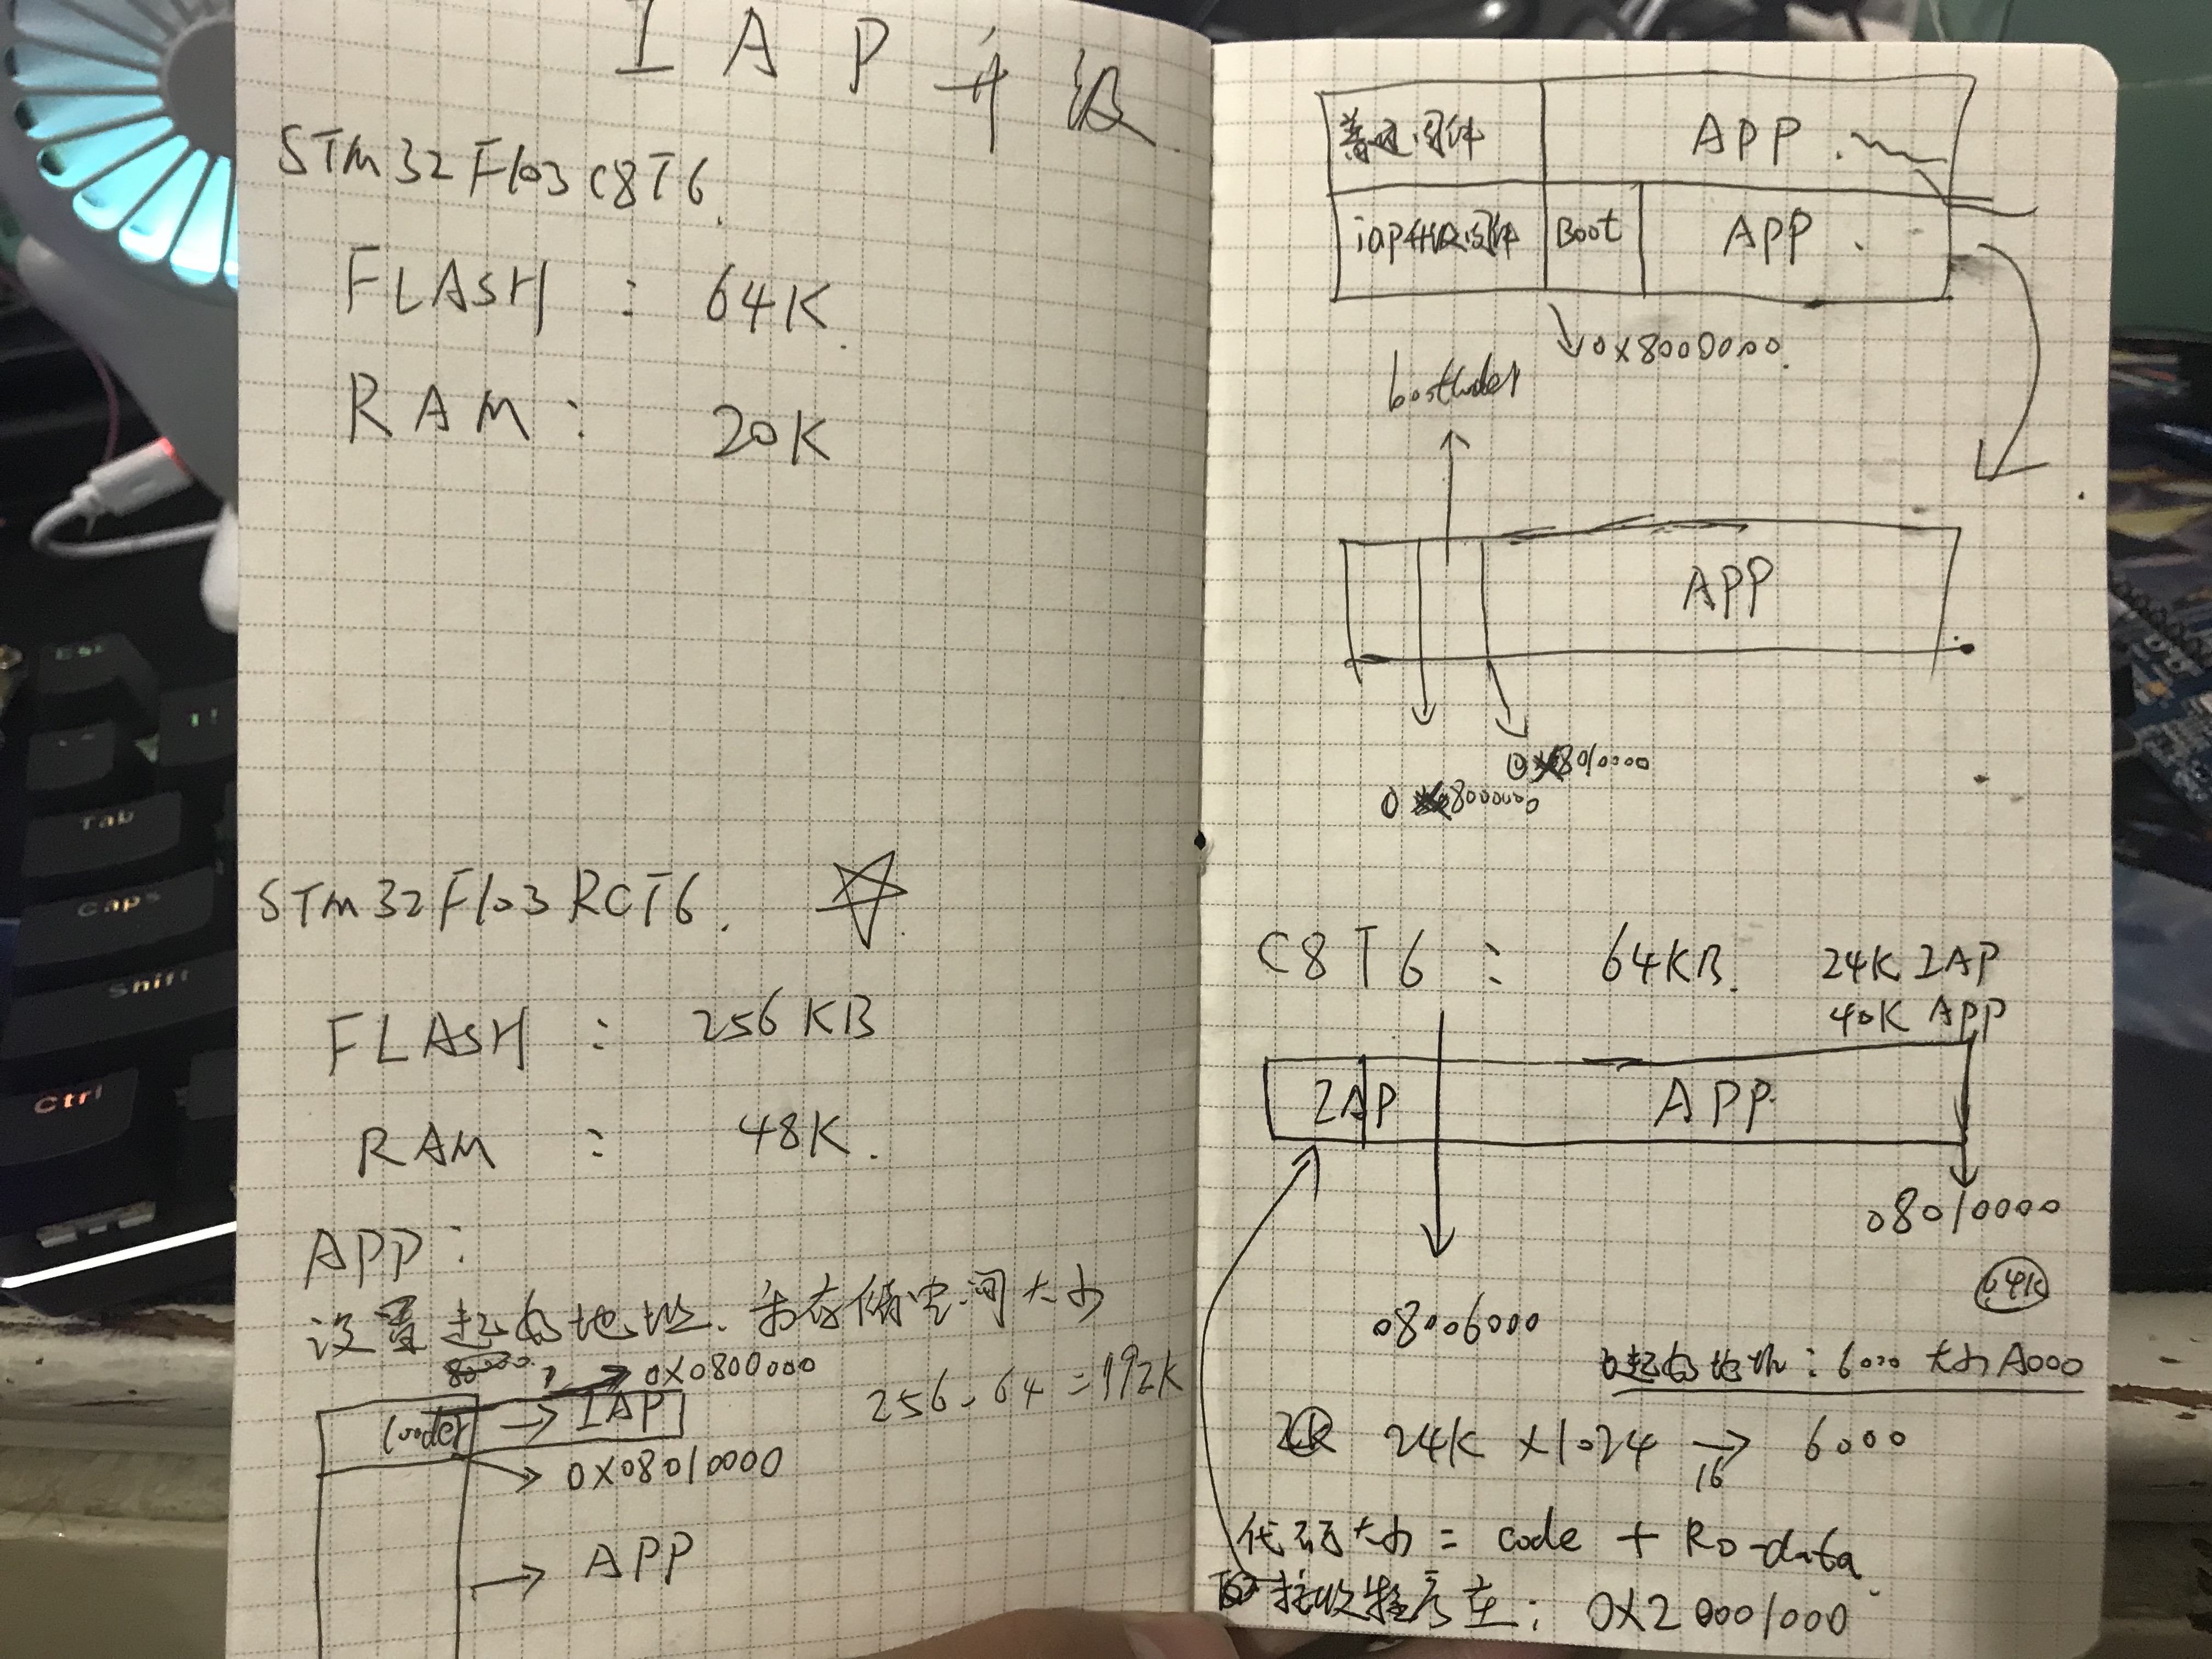 IAP升级.
STM32F103C8T6.
FLASH : 64K.
RAM : 20K
STM32F103RCT6.
FLASH : 256KB
RAM : 48K.
APP:
设置起始地址. 和存储空间大小
0X0800000
256-64=192K
Loader → IAP
0X08010000
→ APP
普通固件 APP.
iap升级固件 Boot APP.
0X8000000.
bootloder
APP
08010000
08000000
C8T6 : 64KB. 24K IAP
40K APP
IAP APP
08010000
64K
08006000
起始地址: 6000 大小A000
24K×1024 →16 6000
代码大小 = code + Ro-data.
接收程序在: 0X20001000
Esc
Tab
Caps
Shift
Ctrl